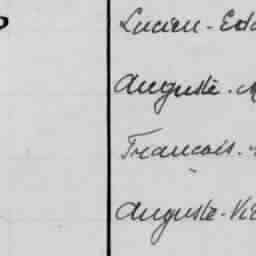 Lucien - Edo
Auguste - 
Francois -
Auguste - Vic